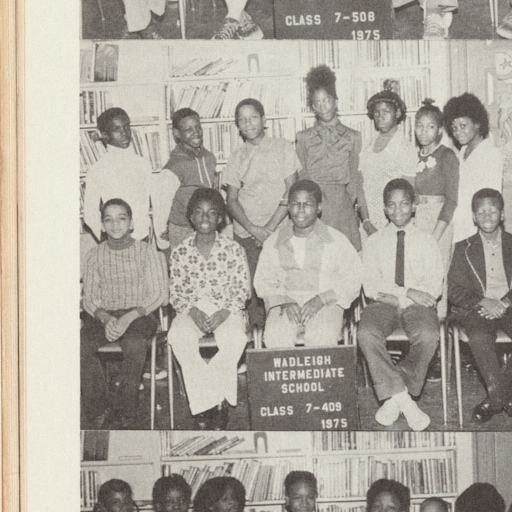 CLASS 7-508
1975
WADLEIGH
INTERMEDIATE
SCHOOL
CLASS 7-409
1975